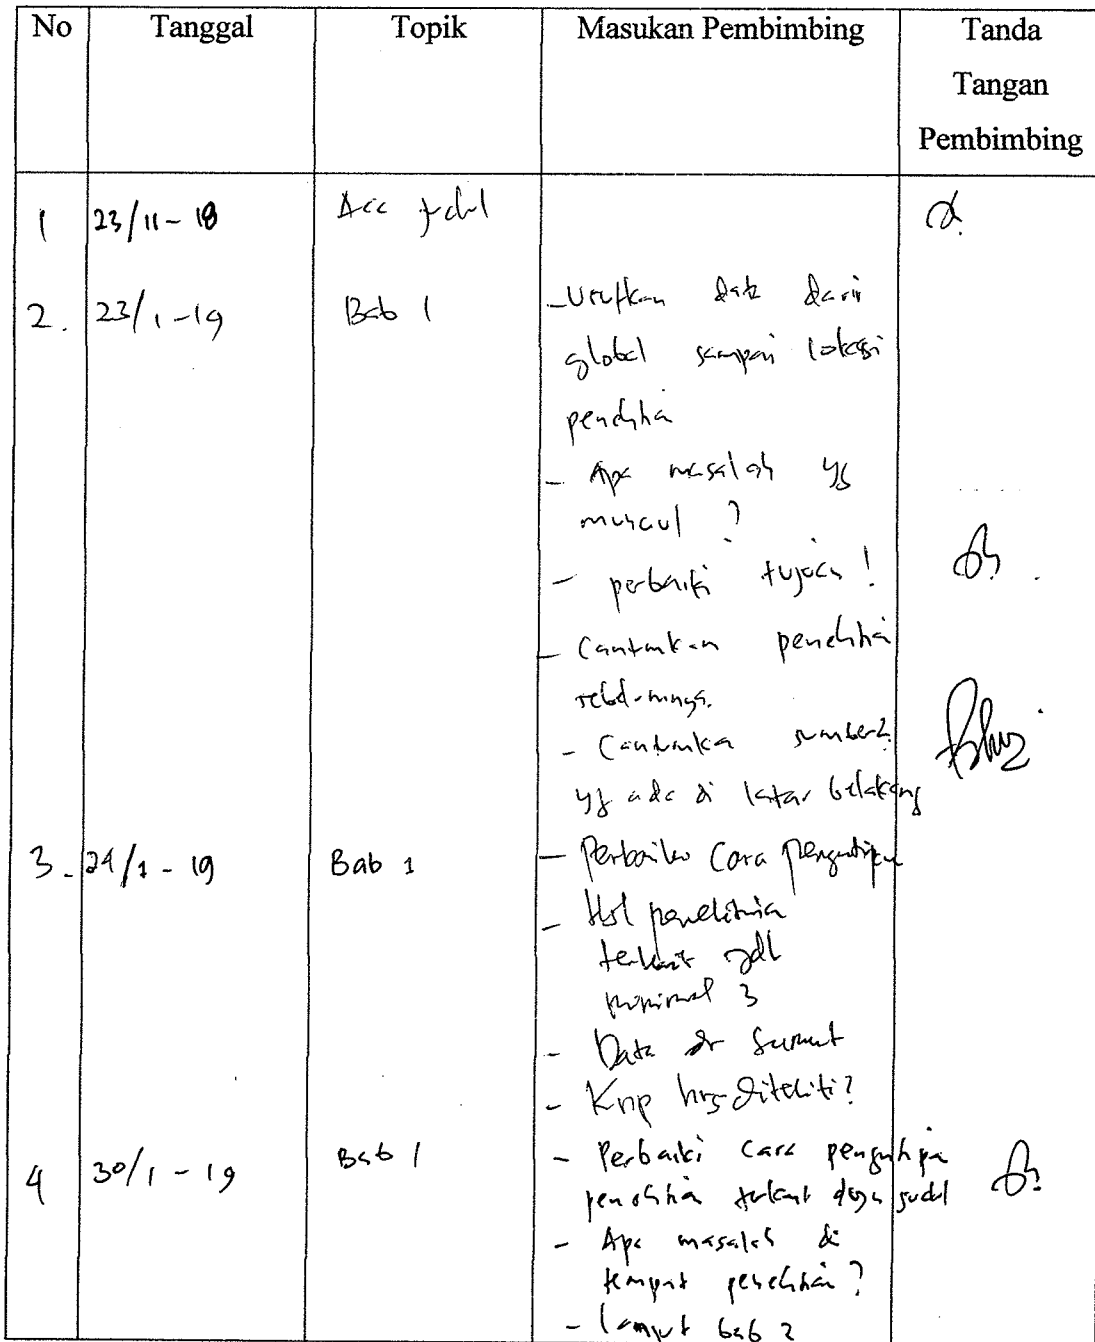 No Tanggal Topik Masukan Pembimbing Tanda
Tangan
Pembimbing
1 23/11-18 Acc judul
2. 23/1-19 Bab 1 - Urutkan data dari
global sampai lokasi
penelitian
- Apa masalah yg
muncul ?
- perbaiki tujuan !
- Cantumkan penelitian
sebelumnya.
- Cantumkan sumber2
yg ada di latar belakang
3. 24/1-19 Bab 1 - Perbaiki Cara Pengutipan
- Hsl penelitian
terkait jdl
minimal 3
- Data dr Sumut
- Knp hrs diteliti?
4 30/1-19 Bab 1 - Perbaiki Cara pengutipan
penelitian terkait dengan judul
- Apa masalah di
tempat penelitian ?
- lanjut bab 2